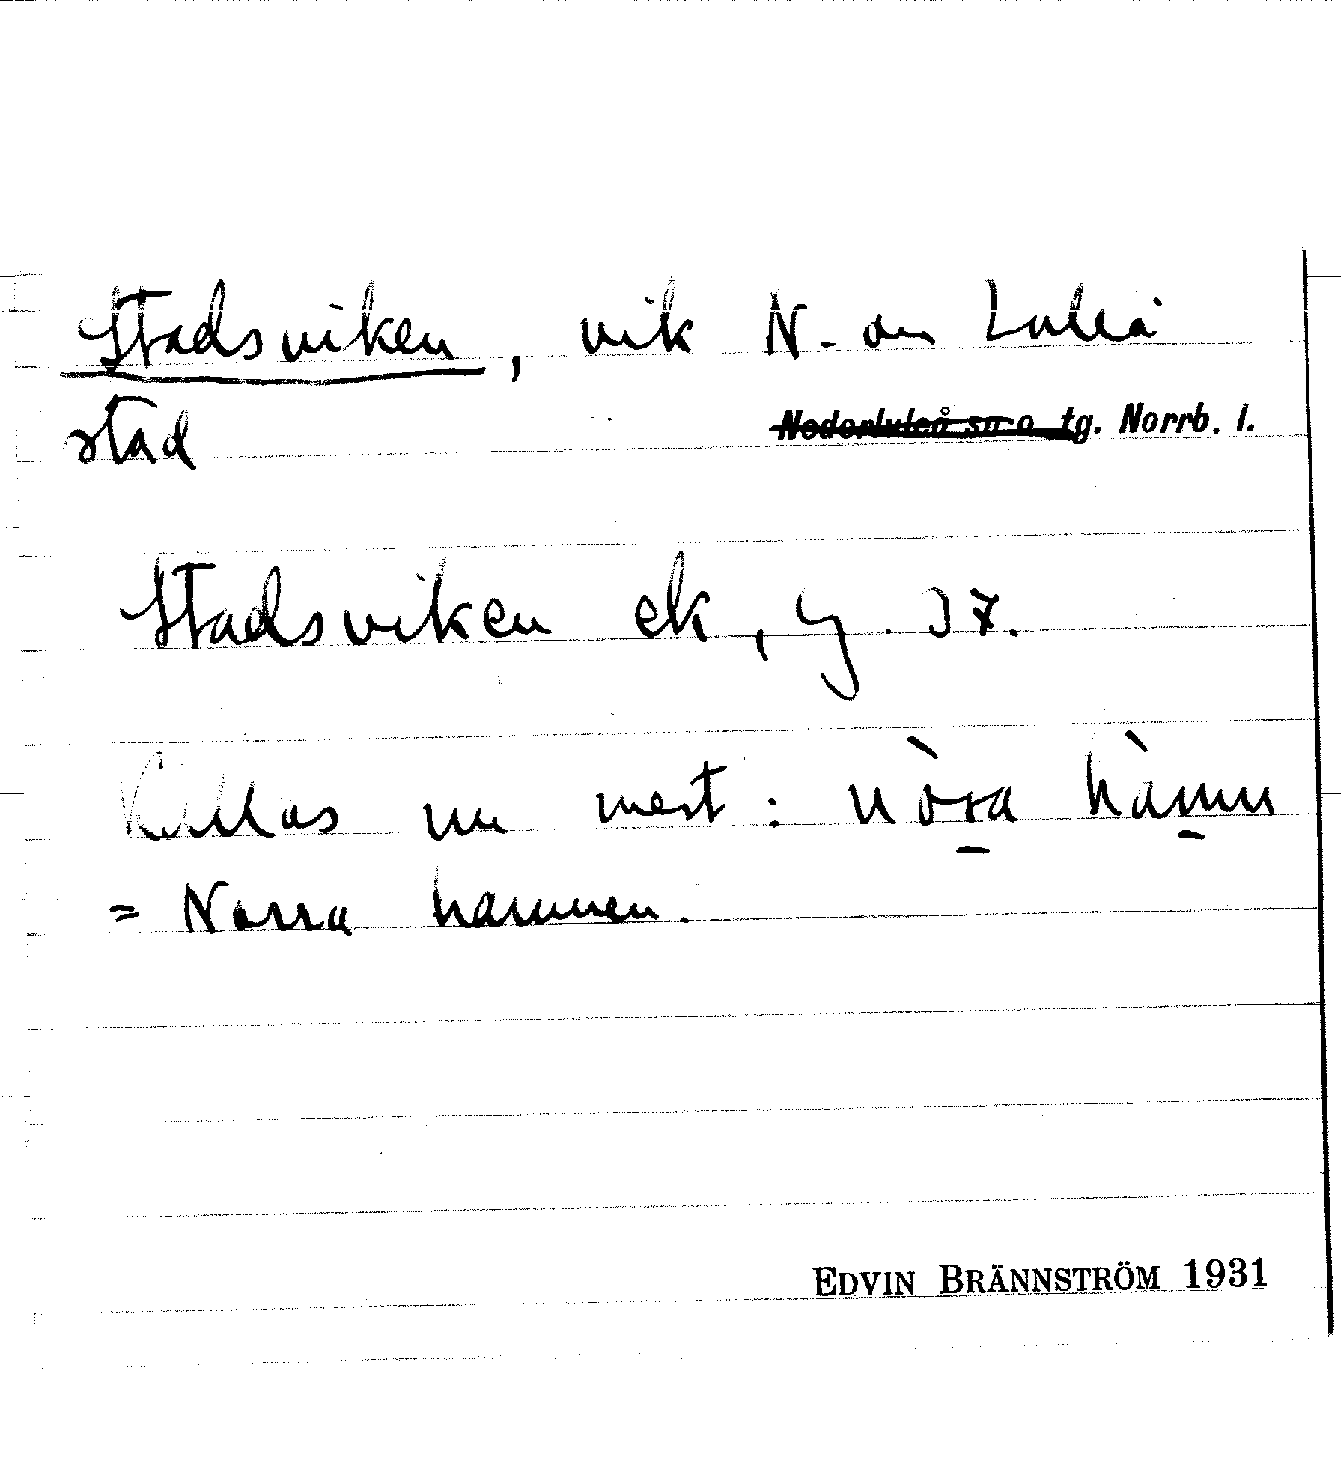 Stadsviken, vik N. om Luleå
stad
Nederluleå sn o. tg. Norrb. l.
Stadsviken ek, 37.
Kallas nu mest: nòra hàmn
= Norra hamnen.
EDVIN BRÄNNSTRÖM 1931